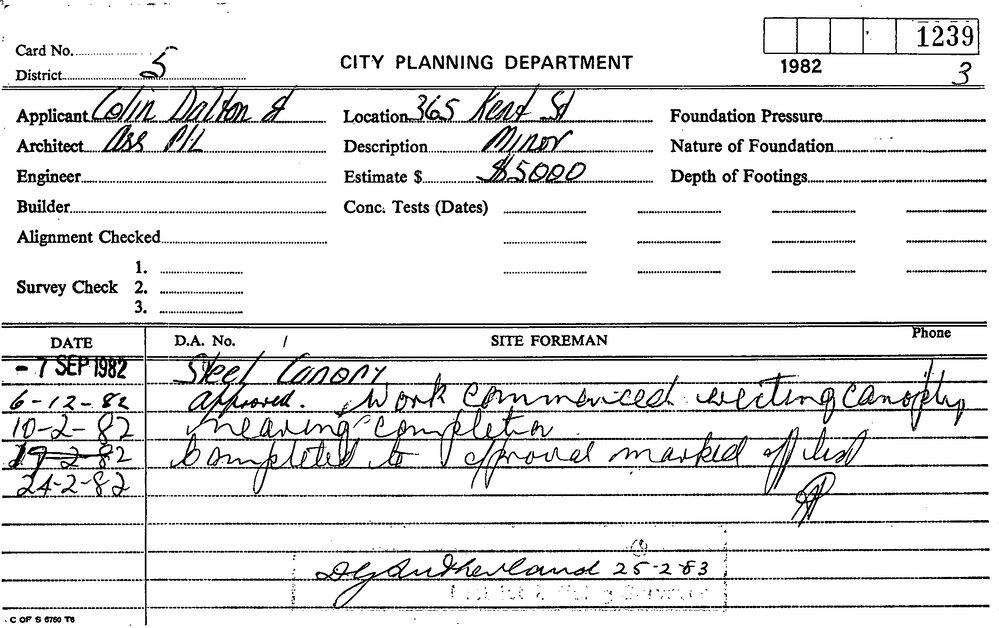 1239
Card No.
District 5
CITY PLANNING DEPARTMENT
1982
3
Applicant Colin Dalton &
Location 365 Kent St
Foundation Pressure
Architect Ass P/L
Description Minor
Nature of Foundation
Engineer
Estimate $ $5000
Depth of Footings
Builder
Conc. Tests (Dates)
Alignment Checked
1.
Survey Check 2.
3.
DATE D.A. No. / SITE FOREMAN Phone
- 7 SEP 1982 Steel Canopy
6-12-82 approved. Work commenced erecting canophy
10-2-82 nearing completion
19-2-82 Completed to approval marked off list
24-2-82
DG Sutherland 25-2-83
C OF S 6760 T6